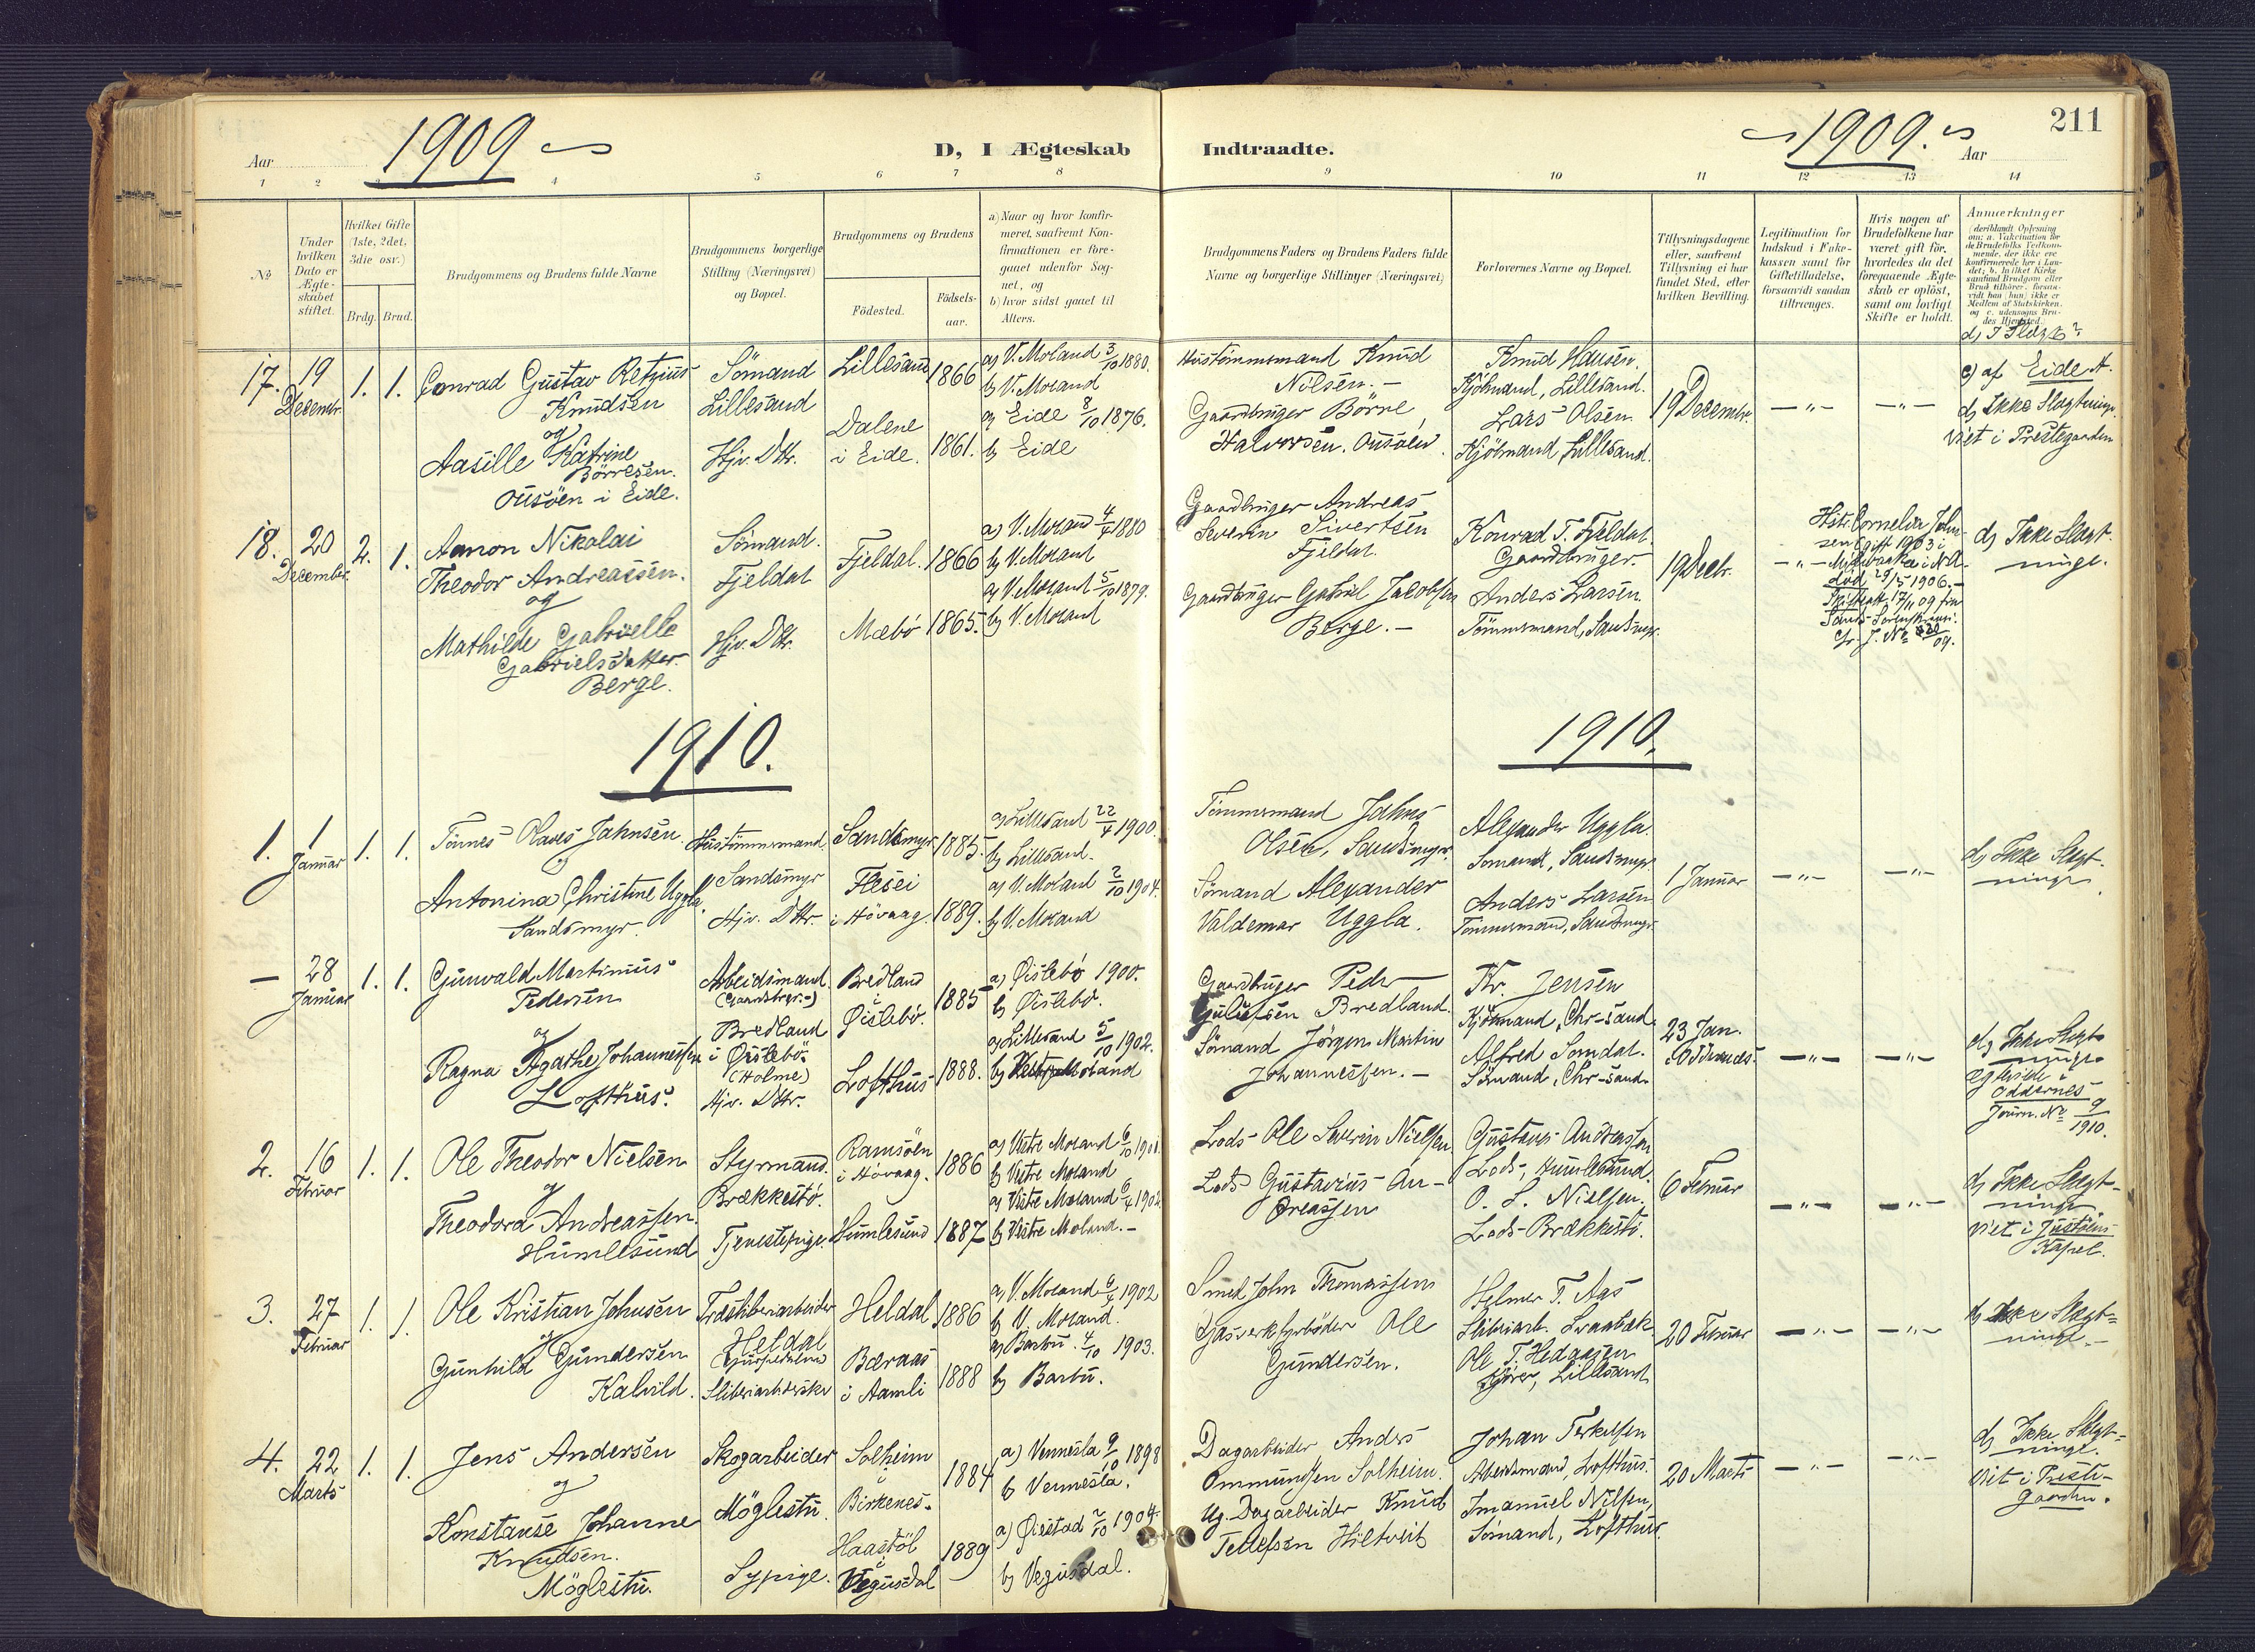 Aar 1909
D, I Ægteskab Indtraadte.
1909. Aar
211
1 2 3 4 5 6 7 8 9 10 11 12 13 14
No
Under hvilken Dato er Ægteskabet stiftet.
Hvilket Gifte (1ste, 2det, 3die osv.)
Brdg. Brud.
Brudgommens og Brudens fulde Navne
Brudgommens borgerlige Stilling (Næringsvei) og Bopæl.
Brudgommens og Brudens
Fødested.
Fødsels-aar.
a) Naar og hvor konfir-
meret, saafremt Kon-
firmationen er fore-
gaaet udenfor Sog-
net, og
b) hvor sidst gaaet til
Alters.
Brudgommens Faders og Brudens Faders fulde
Navne og borgerlige Stillinger (Næringsvei)
Forlovernes Navne og Bopæl.
Tillysningsdagene
eller, saafremt
Tillysning ei har
fundet Sted, efter
hvilken Bevilling.
Legitimation for
Indskud i Enke-
kassen samt for
Giftetilladelse,
forsaavidt saadan
tiltrænges.
Hvis nogen af
Brudefolkene har
været gift før,
hvorledes da det
foregaaende Ægte-
skab er opløst,
samt om lovligt
Skifte er holdt.
Anmærkninger
17. 19 Decembr. 1. 1.
Conrad Gustav Retzius
Knudsen
og
Aasille Katrine
Börresen.
Ousöen i Eide.
Sömand
Lillesand
Hjv. Dttr.
Lillesand 1866
Dalene
i Eide. 1861.
a) V. Moland 3/10 1880.
b) V. Moland
a) Eide 8/10 1876.
b) Eide
Hustömmermand Knud
Nilsen. -
Gaardbruger Börre
Halvorsen. Ousöen.
Knud Hansen.
Kjöbmand, Lillesand.
Lars Olsen
Kjöbmand, Lillesand.
19 Decembr.
- " -
- " -
c) af Eide A.
d) Ikke Slægtninge.
Viet i Prestegaarden
18. 20 December. 2. 1.
Aanon Nikolai
Theodor Andreassen.
og
Mathilde Gabrielle
Gabrielsdatter
Berge.
Sömand.
Fjeldal
Hjv. Dttr.
Fjeldal. 1866
Mæbö 1865.
a) V. Moland 4/4 1880
b) V. Moland
a) V. Moland 5/10 1879.
b) V. Moland
Gaardbruger Andreas
Severin Sivertsen
Fjeldal.
Gaardbruger Gabriel Jacobsen
Berge. -
Konrad T. Fjeldal.
Gaardbruger.
Anders Larsen.
Tömmermand, Sandsmyr.
19 Decbr.
- " -
død 29/5 1906. -
d) Ikke Slægt-
ninge.
1910.
1910.
1. 1 Januar 1. 1.
Tönnes Olaves Jahnsen.
og
Antonina Christine Uggla.
Sandsmyr.
Hustömmermand.
Sandsmyr
Hjv. Dttr.
Sandsmyr 1885.
Flesei
i Hövaag. 1889.
a) Lillesand 22/4 1900.
b) Lillesand.
a) V. Moland 2/10 1904.
b) V. Moland
Tömmermand Jahns
Olsen, Sandsmyr.
Sömand Alexander
Valdemar Uggla.
Alexander Uggla.
Sömand, Sandsmyr.
Anders Larsen
Tömmermand, Sandsmyr.
1 Januar
- " -
- " -
d) Ikke Slægt-
ninge
- 28 Januar 1. 1.
Gunvald Martinius
Pedersen
og
Ragna Agathe Johannessen
Lofthus.
Arbeidsmand.
(Gaardbrgr.-)
Bredland
i Øislebö.
(Holme)
Hjv. Dttr.
Bredland
i
Øislebö. 1885
Lofthus 1888.
a) Øislebö 1900.
b) Øislebö.
a) Lillesand 5/10 1902.
b) Vestre Moland
Gaardbruger Peder
Gulufsen Bredland.
Sömand Jörgen Martin
Johannessen. -
Kr. Jensen
Kjöbmand, Chr-sand.
Alfred Somdal.
Sömand, Chr-sand.
23 Jan.
- " -
- " -
d) Ikke Slægt-
ninge
Egteviede i
Oddernes
Journ. No 9/1910.
2. 16 Februar 1. 1.
Ole Theodor Nielsen
og
Theodora Andreassen.
Humlesund
Styrmand.
Brækkestö.
Tjenestepige.
Ramsöen
i Hövaag. 1886
Humlesund 1887
a) Vestre Moland 6/10 1901.
b) Vestre Moland
a) Vestre Moland 6/4 1902
b) Vestre Moland. -
Lods Ole Severin Nielsen
Lods Gustavius An-
dreassen
Gustavus Andreassen
Lods, Humlesund.
O. S. Nielsen.
Lods - Brækkestö.
6 Februar
- " -
- " -
d) Ikke Slægt-
ninge
Viet i Justöens
Kapel.
3. 27 Februar 1. 1.
Ole Kristian Johnsen
og
Gunhild Gundersen
Kalvild.
Træsliberiarbeider
Heldal
Sliberiarbeiderske
Heldal 1886
Bæraas
i Aamli 1888
a) V. Moland 6/4 1902
b) V. Moland.
a) Barbu. 4/10 1903.
b) Barbu.
Smed John Thomassen
Gasverksfyrböder Ole
Gundersen.
Helmer T. Aas
Sliberiarb.
Ole T. Hedaasen
Lillesand
20 Februar
- " -
- " -
d) Ikke Slægt-
ninge. -
4. 22 Marts 1. 1.
Jens Andersen
og
Konstanse Johanne
Knudsen.
Möglestu.
Skogarbeider
Möglestu.
Sypige.
Solheim
i
Birkenes. 1884
Haastöl
i
Vegusdal 1889
a) Vennesla 9/10 1898
b) Vennesla.
a) Øiestad 2/10 1904.
b) Vegusdal.
Dagarbeider Anders
Ommundsen Solheim.
Ug. Dagarbeider Knud
Tellefsen Hiltveit
Johan Terkelsen
Arbeidsmand, Lofthus.
Imanuel Nilsen,
Sömand, Lofthus.
20 Marts
- " -
- " -
d) Ikke Slægt-
ninge.
Viet i Preste-
gaarden.